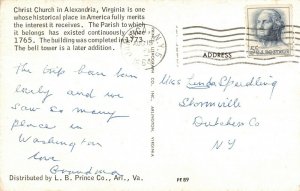 Christ Church in Alexandria, Virginia is one
whose historical place in America fully merits
the interest it receives. The Parish to which
it belongs has existed continuously since
1765. The building was completed in 1773.
The bell tower is a later addition.
The trip has been
lovely and we
saw so many
places in
Washington
Love
Grandma
Distributed by L. B. Prince Co., Arl., Va.
ADDRESS
5¢
Miss Linda Spedling
Stormville
Dutchess Co
NY
ARLINGTON, VIRGINIA
PF89